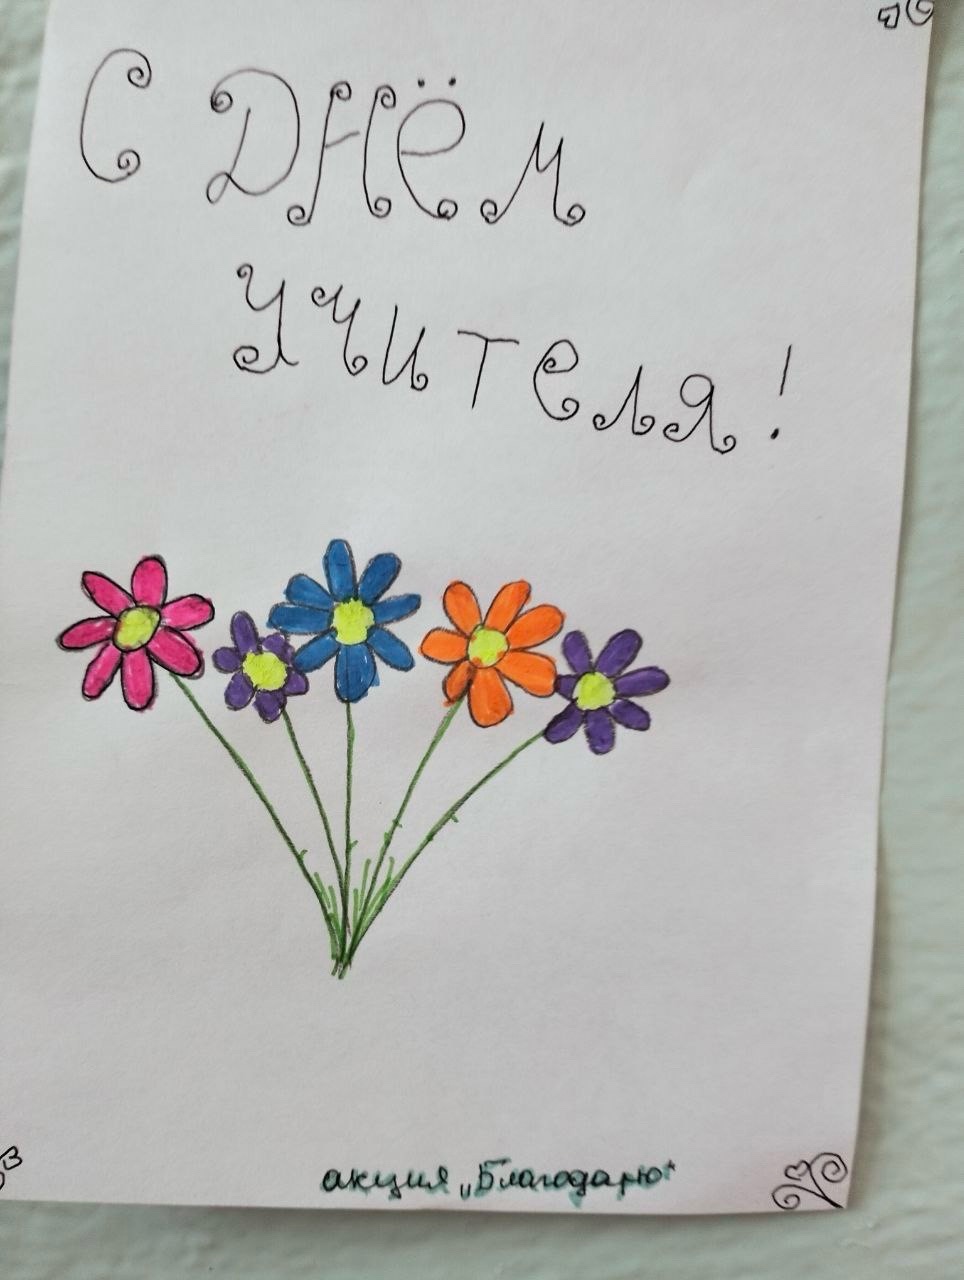 С Днём
учителя!
акция „Благодарю"